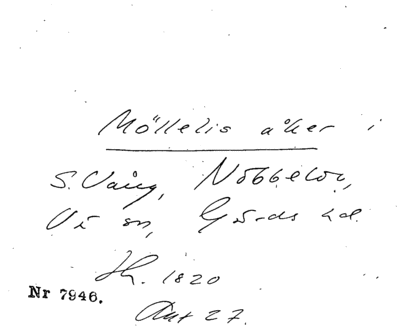 Möllelis åker i
S. Vång, Nöbbelöv,
Vä sn, Gärds hd.
Sk. 1820
Akt 27.
Nr 7946.